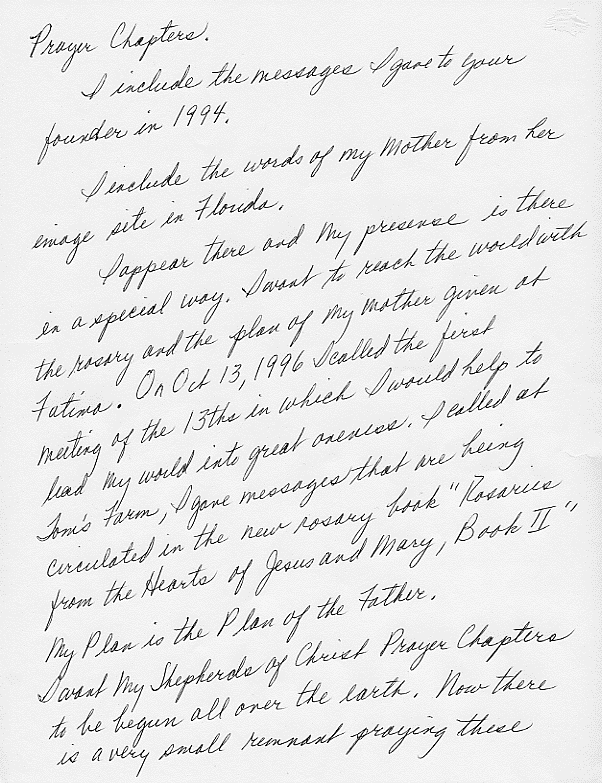 Prayer Chapters.
I include the messages I gave to your
founder in 1994.
I include the words of my Mother from her
image site in Florida.
I appear there and My presense is there
in a special way. I want to reach the world with
the rosary and the plan of My mother given at
Fatima. On Oct 13, 1996 I called the first
meeting of the 13ths in which I would help to
lead My world into great oneness. I called at
Tom's Farm, I gave messages that are being
circulated in the new rosary book "Rosaries
from the Hearts of Jesus and Mary, Book II",
My Plan is the Plan of the Father.
I want My Shepherds of Christ Prayer Chapters
to be begun all over the earth. Now there
is a very small remnant praying these